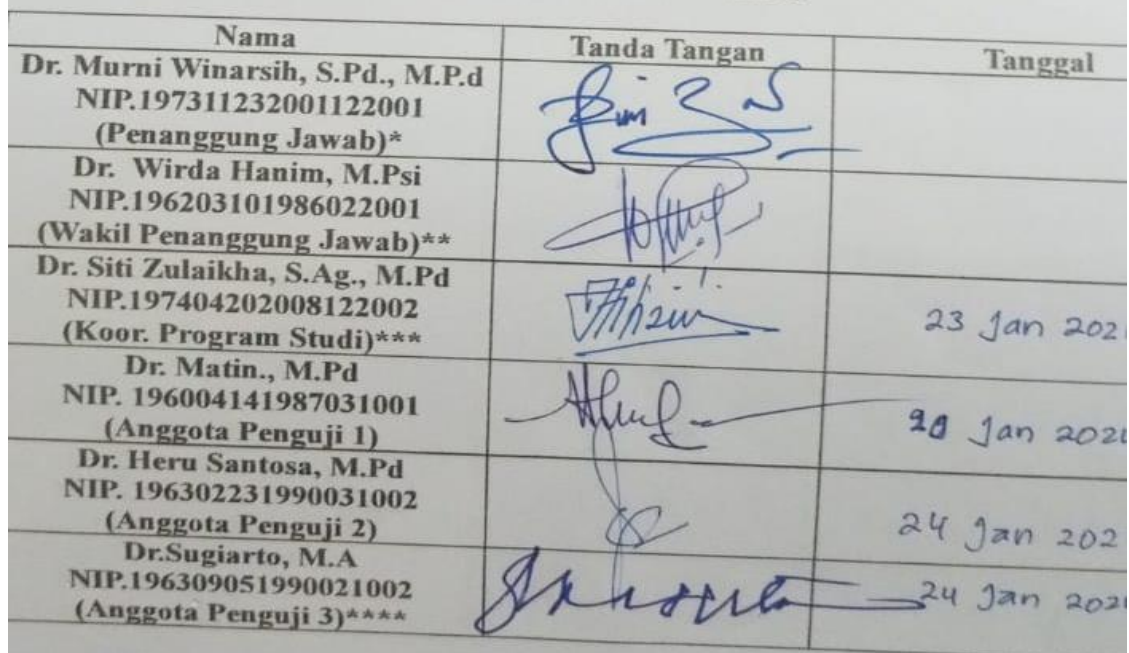 Nama Tanda Tangan Tanggal
Dr. Murni Winarsih, S.Pd., M.P.d
NIP.197311232001122001
(Penanggung Jawab)*
Dr. Wirda Hanim, M.Psi
NIP.196203101986022001
(Wakil Penanggung Jawab)**
Dr. Siti Zulaikha, S.Ag., M.Pd
NIP.197404202008122002
(Koor. Program Studi)***
23 Jan
Dr. Matin., M.Pd
NIP. 196004141987031001
(Anggota Penguji 1)
Jan
Dr. Heru Santosa, M.Pd
NIP. 196302231990031002
(Anggota Penguji 2)
24 Jan
Dr.Sugiarto, M.A
NIP.196309051990021002
(Anggota Penguji 3)****
24 Jan